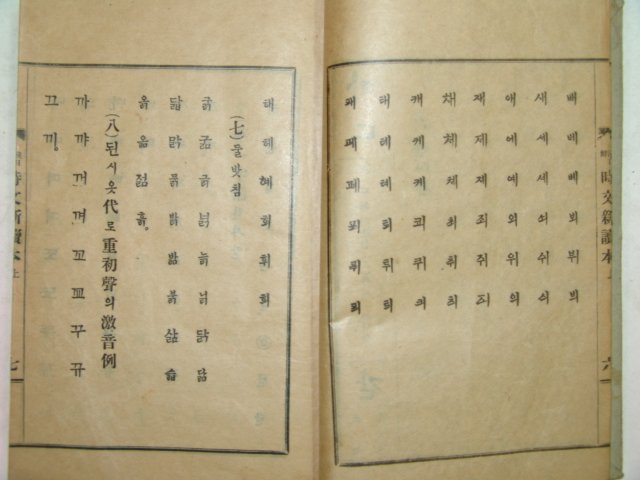 時文新讀本 上 六
배 베 볘 뵈 뷔 븨
새 세 셰 쇠 쉬 싀
애 에 예 외 위 의
재 제 졔 죄 쥐 즤
채 체 쳬 최 취 츼
캐 케 켸 쾨 퀴 킈
태 테 톄 퇴 튀 틔
패 페 폐 푀 퓌 픠
해 헤 혜 회 휘 희
(七)둘밧침
굵 굶 긁 늙 닭 닮
맑 묽 밝 밟 붉 삶
옭 옮 젊 흙。
(八)된시옷代로重初聲의激音例
까 꺄 꺼 껴 꼬 꾜 꾸 뀨
끄 끼。
時文新讀本 上 七